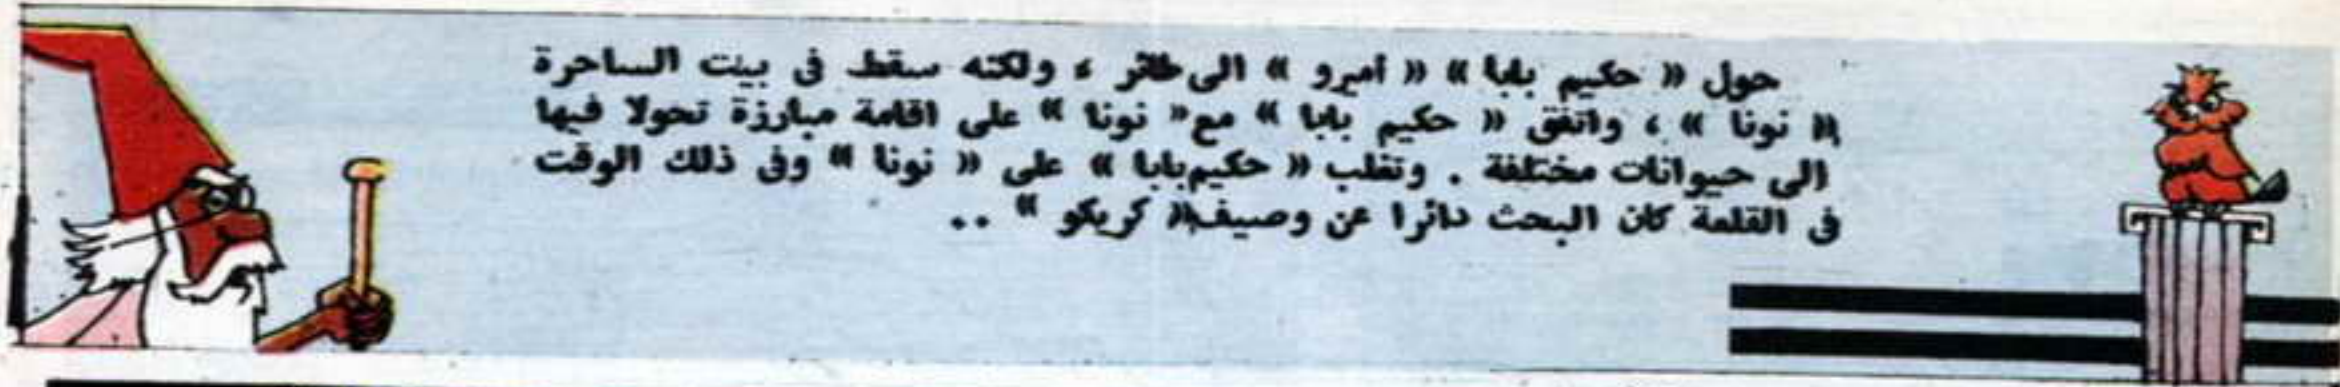 حول « حكيم بابا » « أميرو » الى طائر ، ولكنه سقط فى بيت الساحرة
« نونا » ، واتفق « حكيم بابا » مع « نونا » على اقامة مبارزة تحولا فيها
الى حيوانات مختلفة . وتغلب « حكيم بابا » على « نونا » وفى ذلك الوقت
فى القلعة كان البحث دائرا عن وصيف « كريكو » ..